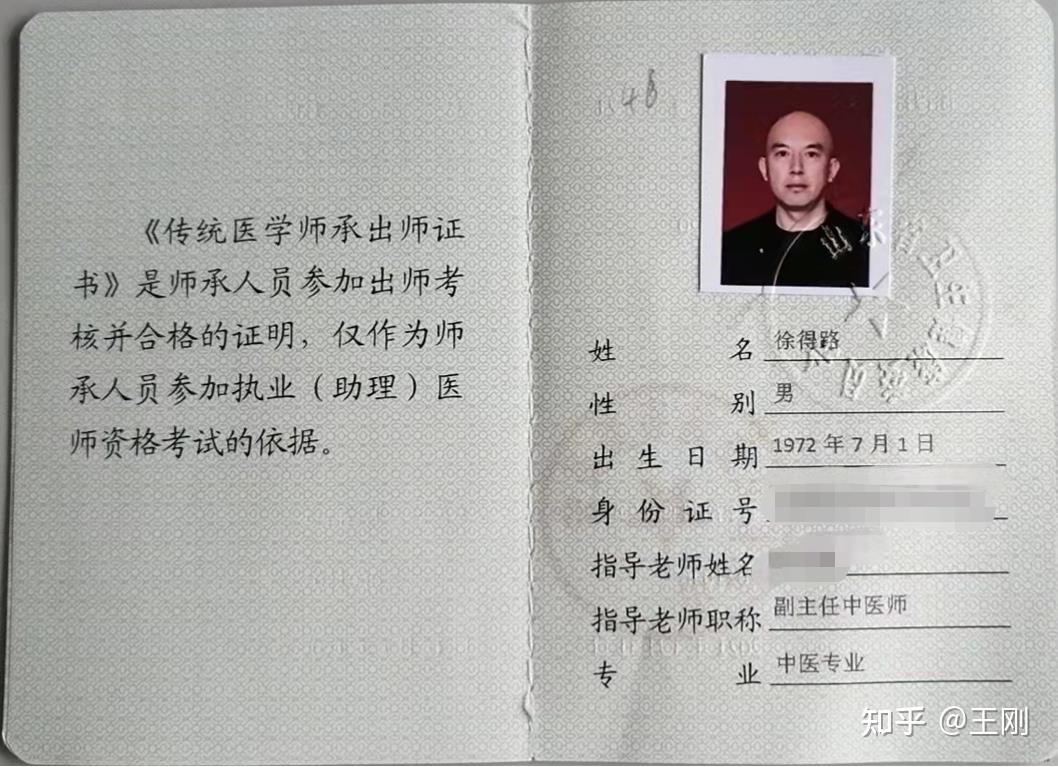 《传统医学师承出师证
书》是师承人员参加出师考
核并合格的证明，仅作为师
承人员参加执业（助理）医
师资格考试的依据。
48
姓名 徐得路
性别 男
出生日期 1972 年 7 月 1 日
身份证号
指导老师姓名
指导老师职称 副主任中医师
专业 中医专业
知乎 @王刚